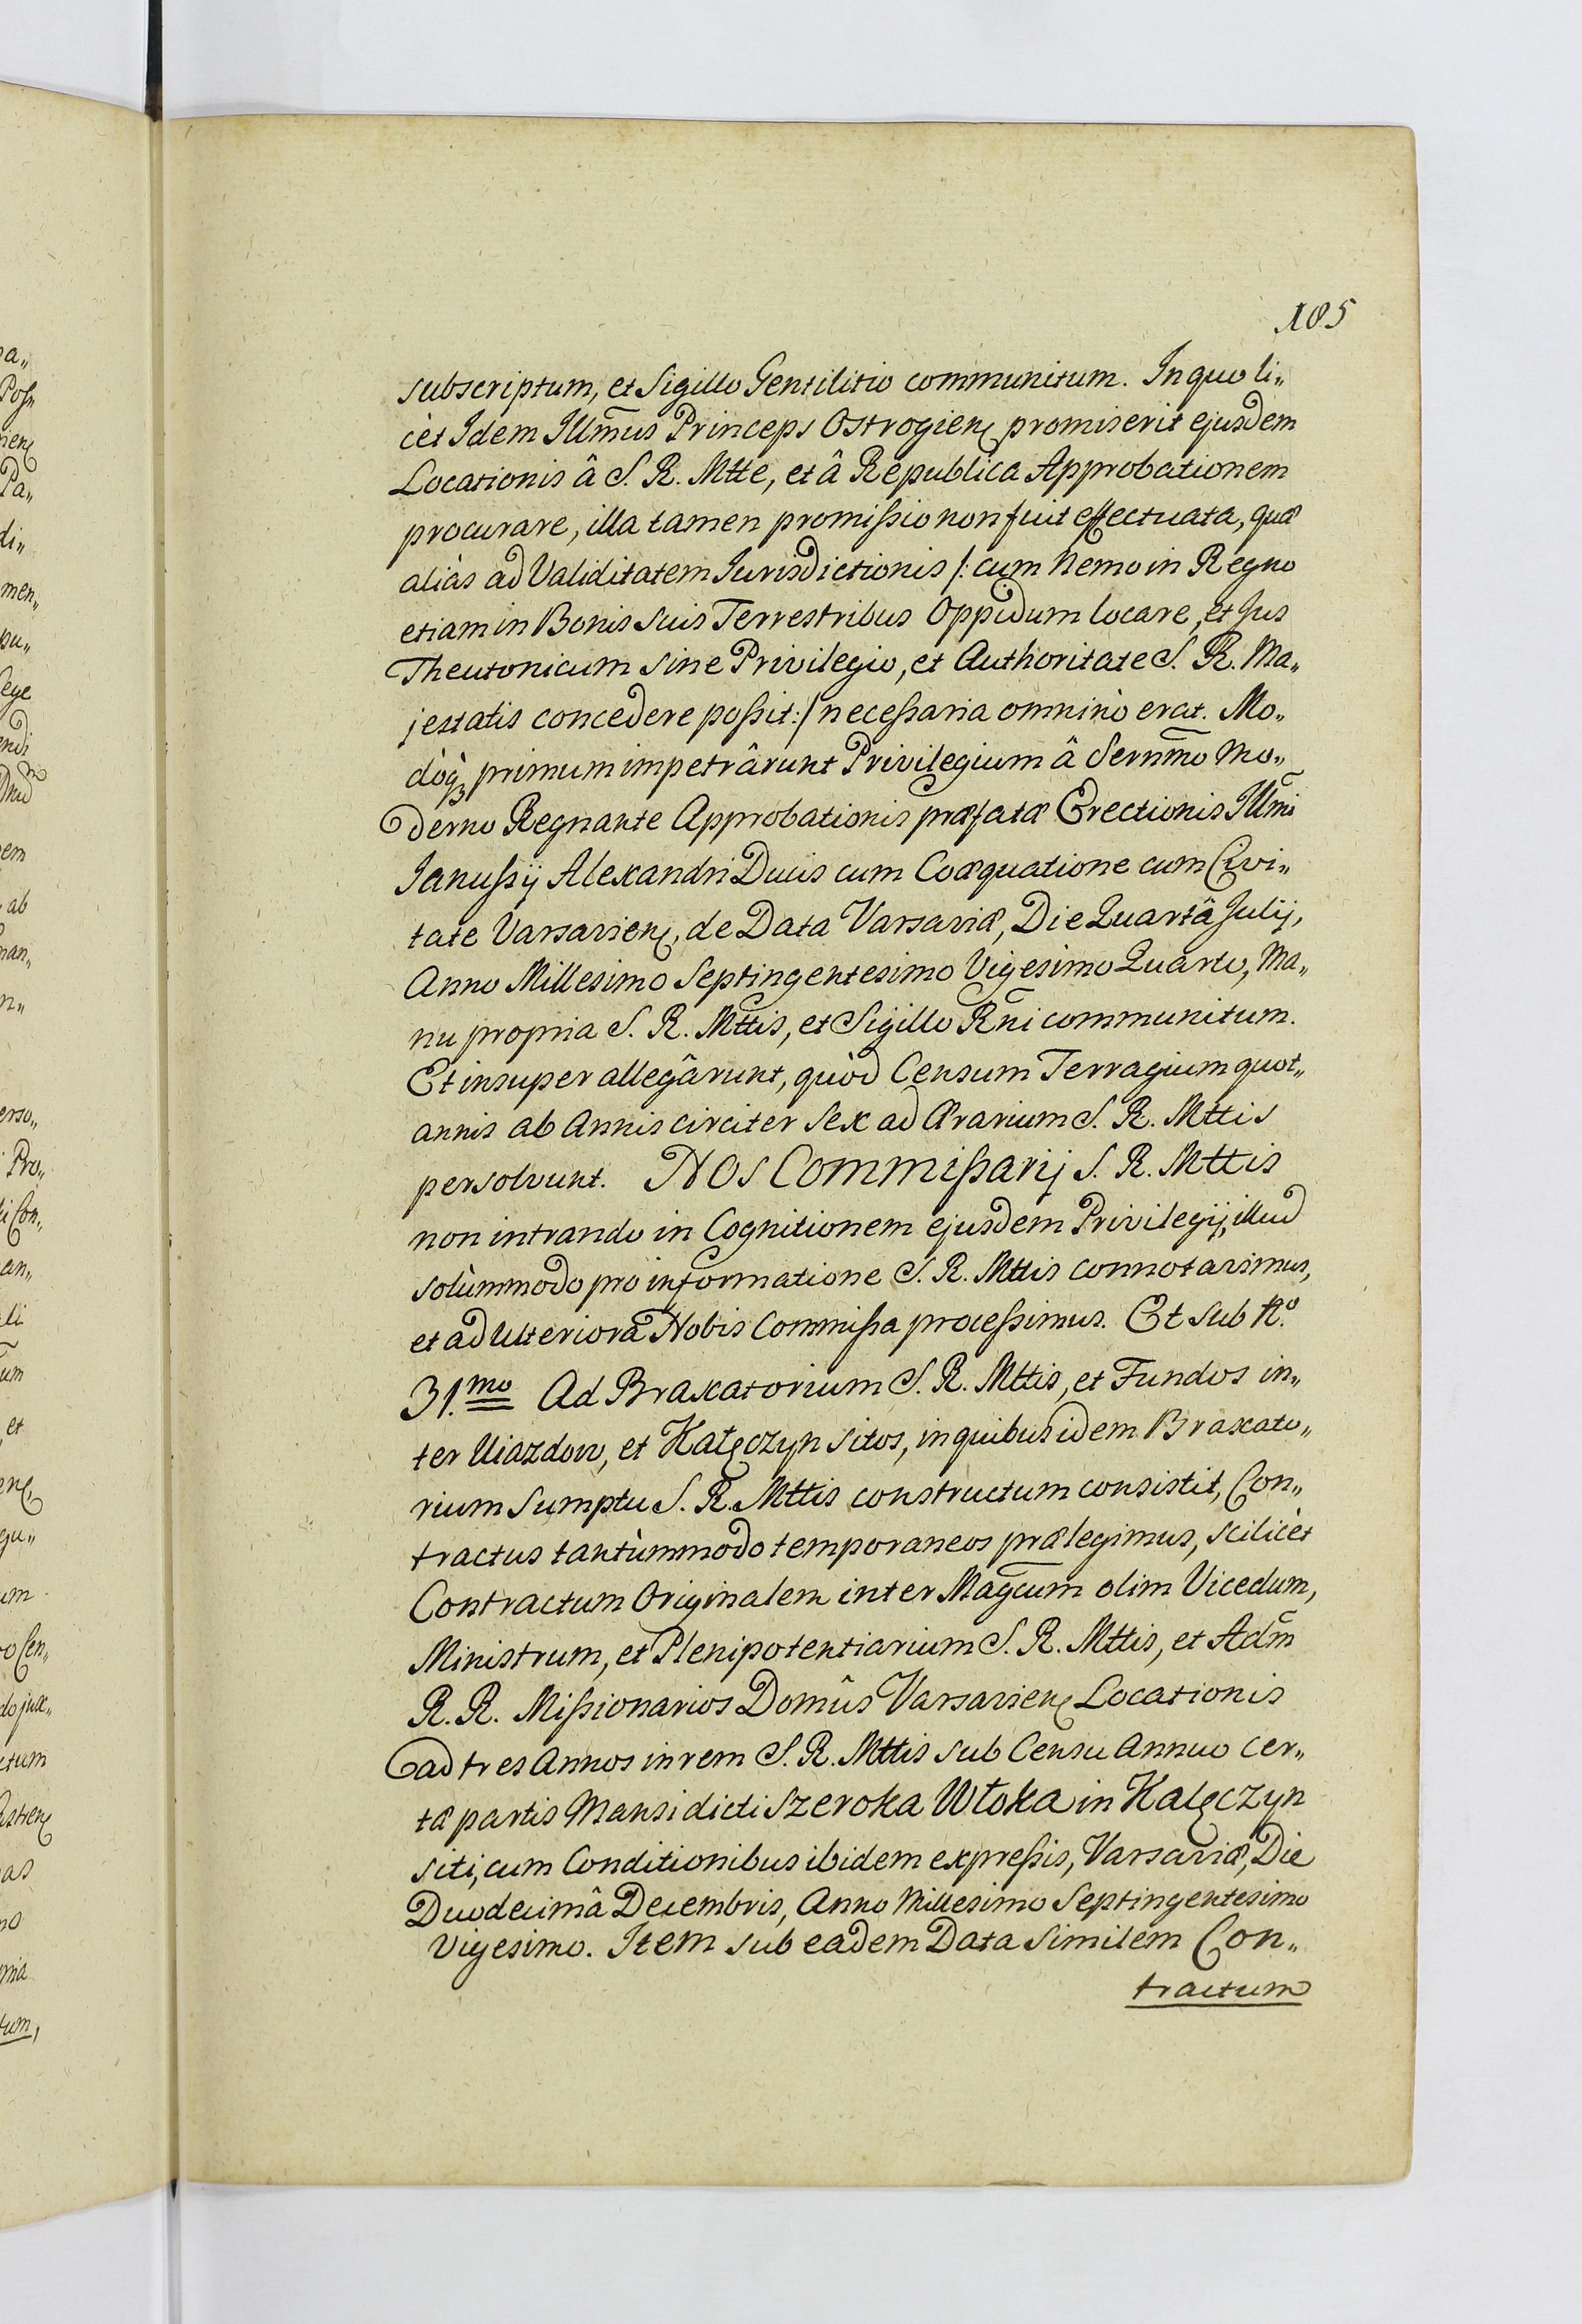 105
subscriptum, et Sigillo Gentilitio communitum. In quo li„
cèt Idem Illm̃us Princeps Ostrogien̄ promiserit ejusdem
Locationis â S. R. Mtte, et â Republica Approbationem
procurare, illa tamen promißio non fuit effectuata, quæ
aliàs ad Validitatem Jurisdictionis /: cum Nemo in Regno
etiam in Bonis suis Terrestribus Oppidum locare, et Jus
Theutonicum sine Privilegio, et Authoritate S. R. Ma„
jestatis concedere poßit :/ neceßaria omninò erat. Mo„
dòq; primum impetrârunt Privilegium â Sernm̃o Mo„
derno Regnante Approbationis præfatæ Erectionis Illm̃i
Janußij Alexandri Ducis cum Coæquatione cum Civi„
tate Varsavien̄, de Data Varsaviæ, Die Quartâ Julij,
Anno Millesimo Septingentesimo Vigesimo Quarto, Ma„
nu propria S. R. Mttis, et Sigillo Rñi communitum.
Et insuper allegârunt, quòd Censum Terragium quot„
annis ab Annis circiter Sex ad Ærarium S. R. Mttis
persolvunt. NOS Commißarij S. R. Mttis
non intrando in Cognitionem ejusdem Privilegij, illud
solùmmodo pro informatione S. R. Mttis connotavimus,
et ad Ulteriora Nobis Commißa proceßimus. Et sub N.º
31.mo Ad Braxatorium S. R. Mttis, et Fundos in„
ter Uiazdow, et Kałęczyn sitos, in quibus idem Braxato„
rium Sumptu S. R. Mttis constructum consistit, Con„
tractus tantùmmodo temporaneos prælegimus, scilicèt
Contractum Originalem inter Magc̃um olim Vicedum,
Ministrum, et Plenipotentiarium S. R. Mttis, et Adm̃
R. R. Mißionarios Domûs Varsavien̄ Locationis
ad tres Annos in rem S. R. Mttis sub Censu Annuo cer„
tæ partis Mansi dicti Szeroka Włoka in Kalęczyn
siti, cum Conditionibus ibidem expreßis, Varsaviæ, Die
Duodecimâ Decembris, Anno Millesimo Septingentesimo
Vigesimo. Item sub eadem Data Similem Con„
tractum